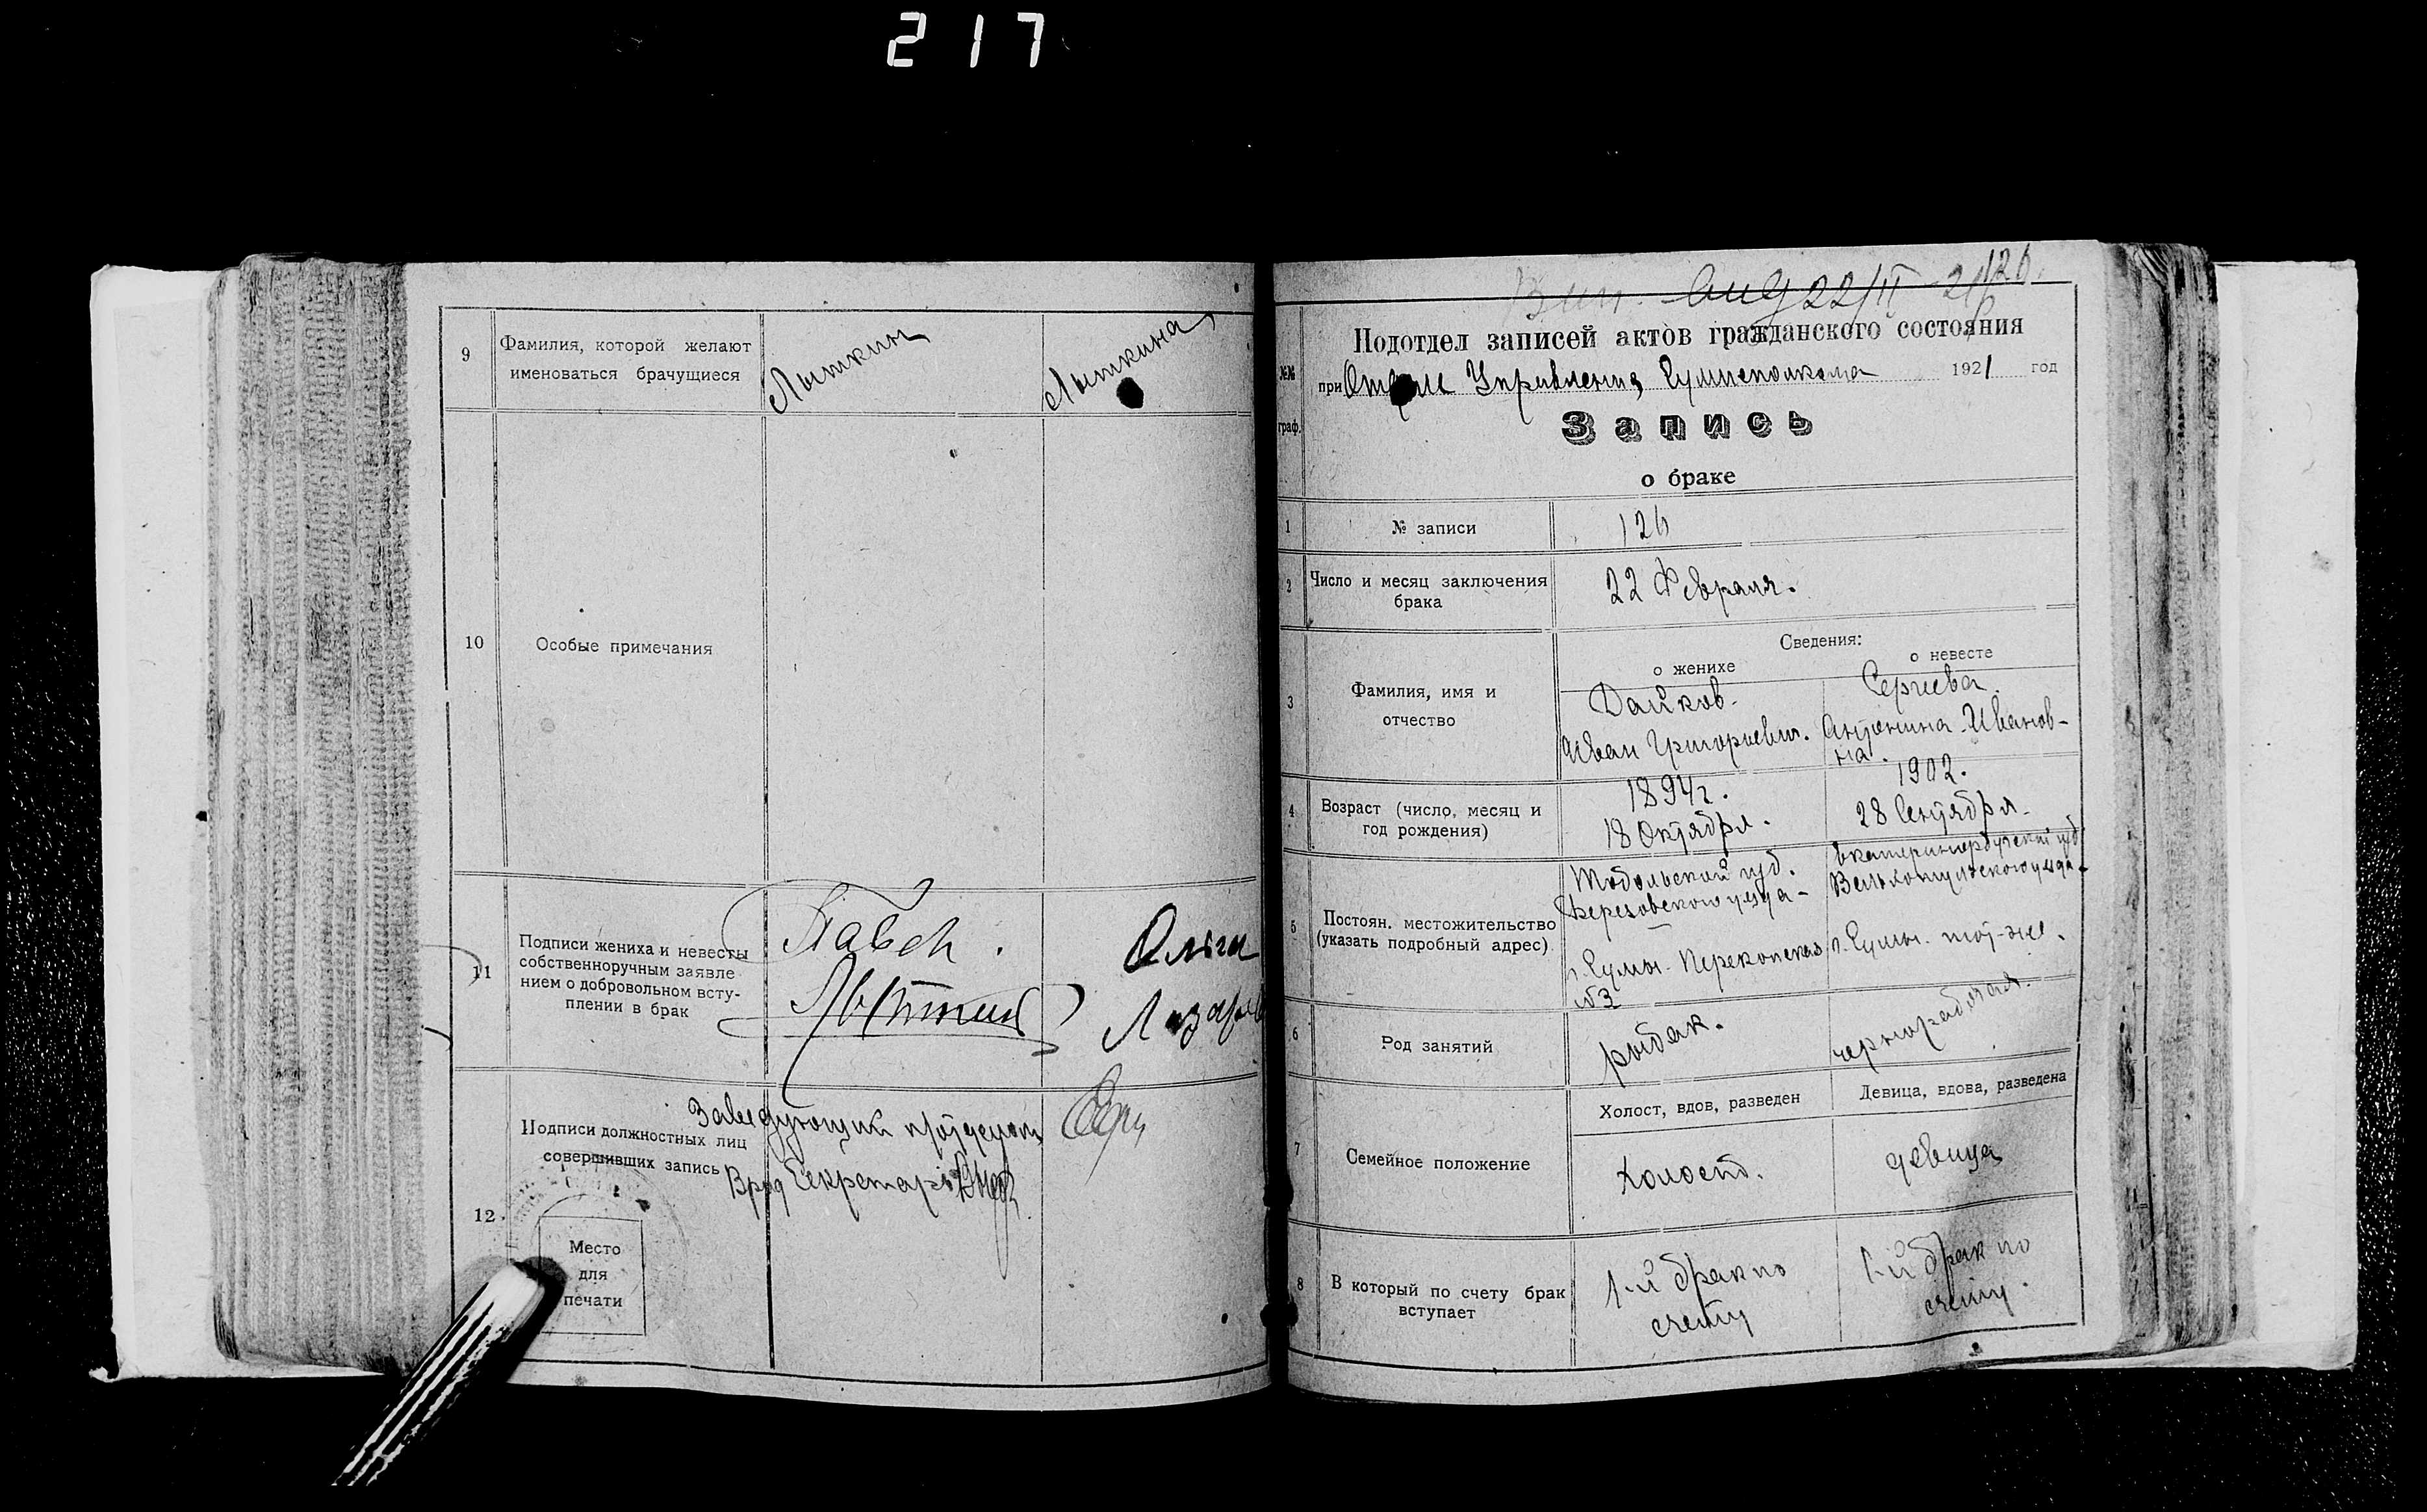 217
9
Фамилия, которой желают
именоваться брачущиеся
Лыткин
Лыткина
10
Особые примечания
11
Подписи жениха и невесты
собственноручным заявле
нием о добровольном всту-
плении в брак
Павел
Лыткин
Ольга
Лазарев
12
Подписи должностных лиц
совершивших запись
Заведующий п/отделом
Врид Секретарь
Место
для
печати
22/II - 21
126
№№
граф.
Подотдел записей актов гражданского состояния
при Отделе Управления 1921 год
Запись
о браке
1
№ записи
126
2
Число и месяц заключения
брака
22 Февраля.
Сведения:
о женихе
о невесте
3
Фамилия, имя и
отчество
Дайков.
Иван Григорьевич.
Сергиева.
Антонина Иванов-
на.
4
Возраст (число, месяц и
год рождения)
1894г.
18 Октября.
1902.
28 Сентября.
5
Постоян. местожительство
(указать подробный адрес)
Тобольской губ.
Березовского уезда-
№3
Екатеринбургской губ
то-же.
6
Род занятий
рыбак.
чернорабочая.
7
Семейное положение
Холост, вдов, разведен
Девица, вдова, разведена
холост.
девица
8
В который по счету брак
вступает
1-й брак по
счету
1-й брак по
счету.